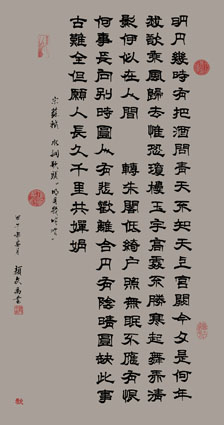 明月幾時有把酒問青天不知天上宮闕今夕是何年
我欲乘風歸去惟恐瓊樓玉宇高處不勝寒起舞弄清
影何似在人間 轉朱閣低綺戶照無眠不應有恨
何事長向別時圓人有悲歡離合月有陰晴圓缺此事
古難全但願人長久千里共嬋娟
宋蘇軾 水調歌頭 明月幾時有